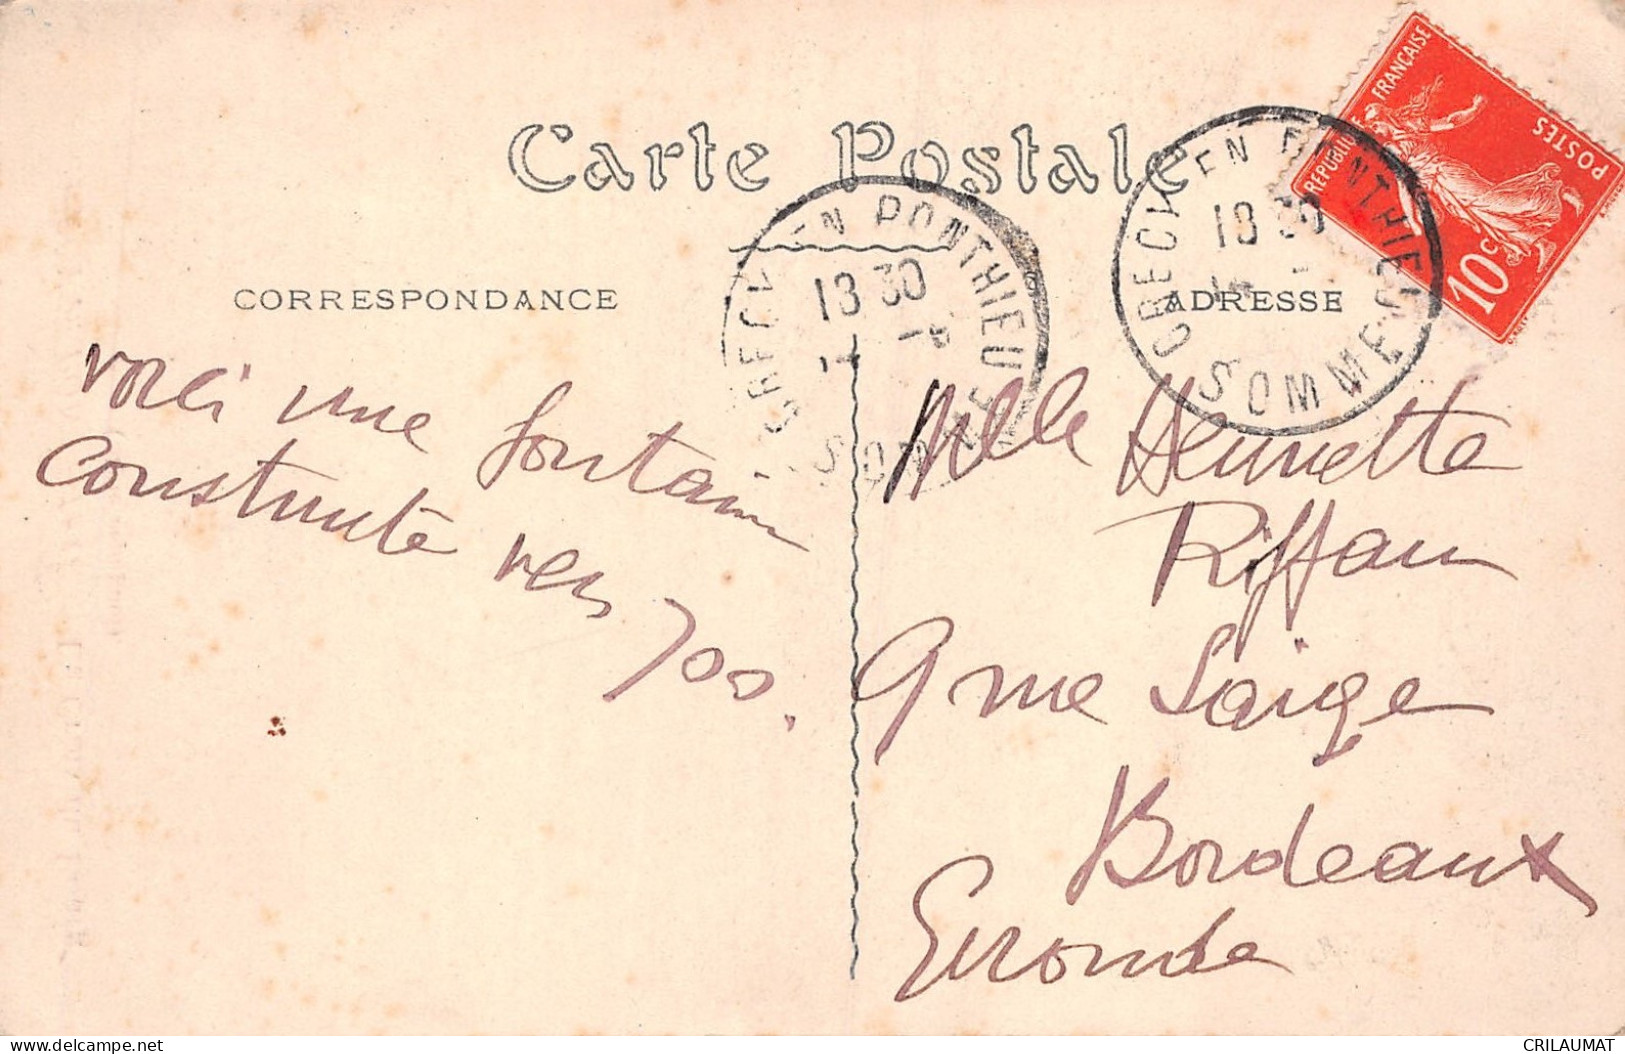 Carte Postale
CORRESPONDANCE
ADRESSE
RÉPUBLIQUE FRANÇAISE
POSTES
10c
CRECY-EN-PONTHIEU
18 30
SOMME
CRECY-EN-PONTHIEU
18 30
SOMME
voici une fontaine
construite vers
700.
Melle Henriette
Riffaud
9 rue Saige
Bordeaux
Gironde
delcampe.net
CRILAUMAT